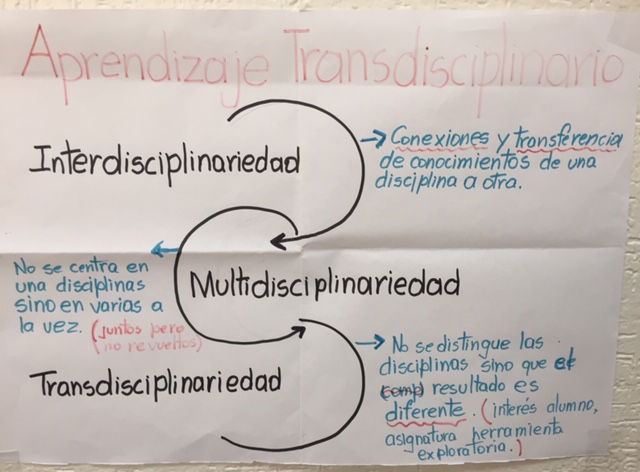 Aprendizaje Transdisciplinario
Interdisciplinariedad
→ Conexiones y transferencia
de conocimientos de una
disciplina a otra.
No se centra en
una disciplinas
sino en varias a
la vez. (juntos pero
no revueltos)
Multidisciplinariedad
Transdisciplinariedad
→ No se distingue las
disciplinas sino que el
comp resultado es
diferente. (interés alumno,
asignatura herramienta
exploratoria.)